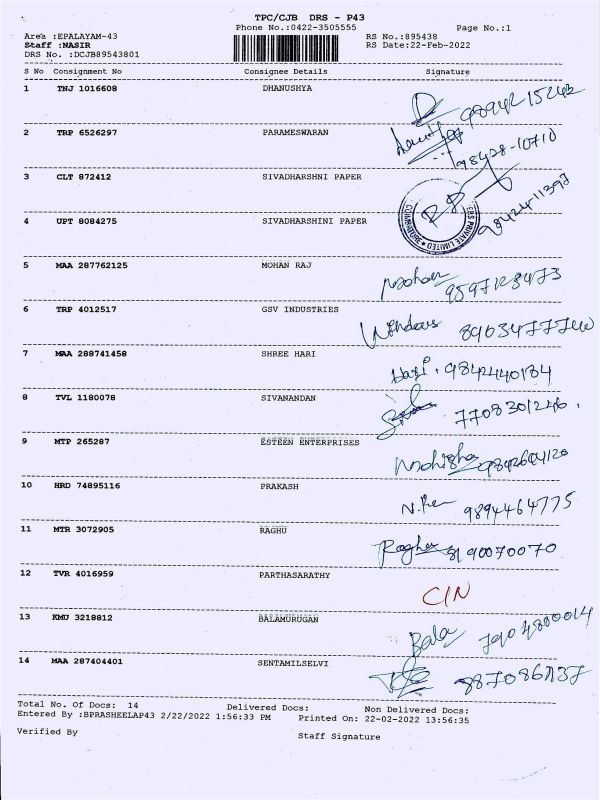 TPC/CJB DRS - P43
Phone No.:0422-3505555 Page No.:1
Area :EPALAYAM-43 RS No.:895438
Staff :NASIR RS Date:22-Feb-2022
DRS No. :DCJB89543801
S No Consignment No Consignee Details Signature
1 TNJ 1016608 DHANUSHYA
2 TRP 6526297 PARAMESWARAN
98428-10710
3 CLT 872412 SIVADHARSHNI PAPER
9842411397
4 UPT 8084275 SIVADHARSHINI PAPER
COIMBATORE
PRIVATE LIMITED
5 MAA 287762125 MOHAN RAJ
Mohan
6 TRP 4012517 GSV INDUSTRIES
7 MAA 288741458 SHREE HARI
Hari. 9842440184
8 TVL 1180078 SIVANANDAN
7708301246.
9 MTP 265287 ESTEEN ENTERPRISES
10 HRD 74895116 PRAKASH
9894464775
11 MTR 3072905 RAGHU
8190070070
12 TVR 4016959 PARTHASARATHY
C/N
13 KMU 3218812 BALAMURUGAN
Bala
14 MAA 287404401 SENTAMILSELVI
Total No. Of Docs: 14 Delivered Docs: Non Delivered Docs:
Entered By :BPRASHEELAP43 2/22/2022 1:56:33 PM Printed On: 22-02-2022 13:56:35
Verified By Staff Signature